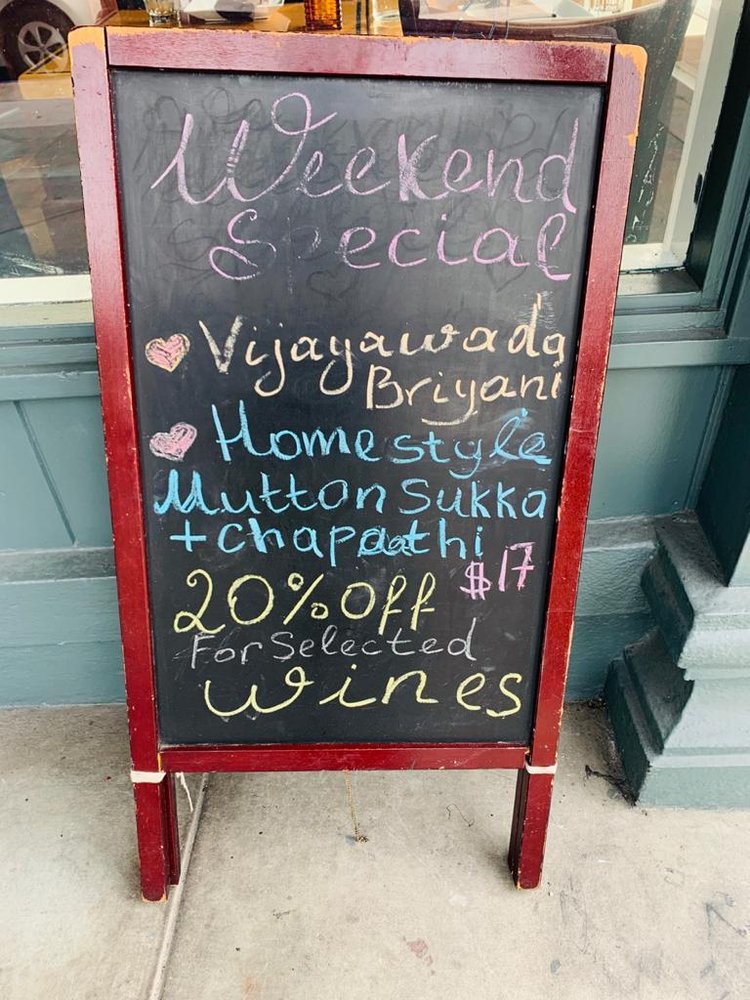 Weekend
Special
Vijayawada
Briyani
Home style
Mutton Sukka
+ chapaathi
$17
20% Off
For Selected
wines